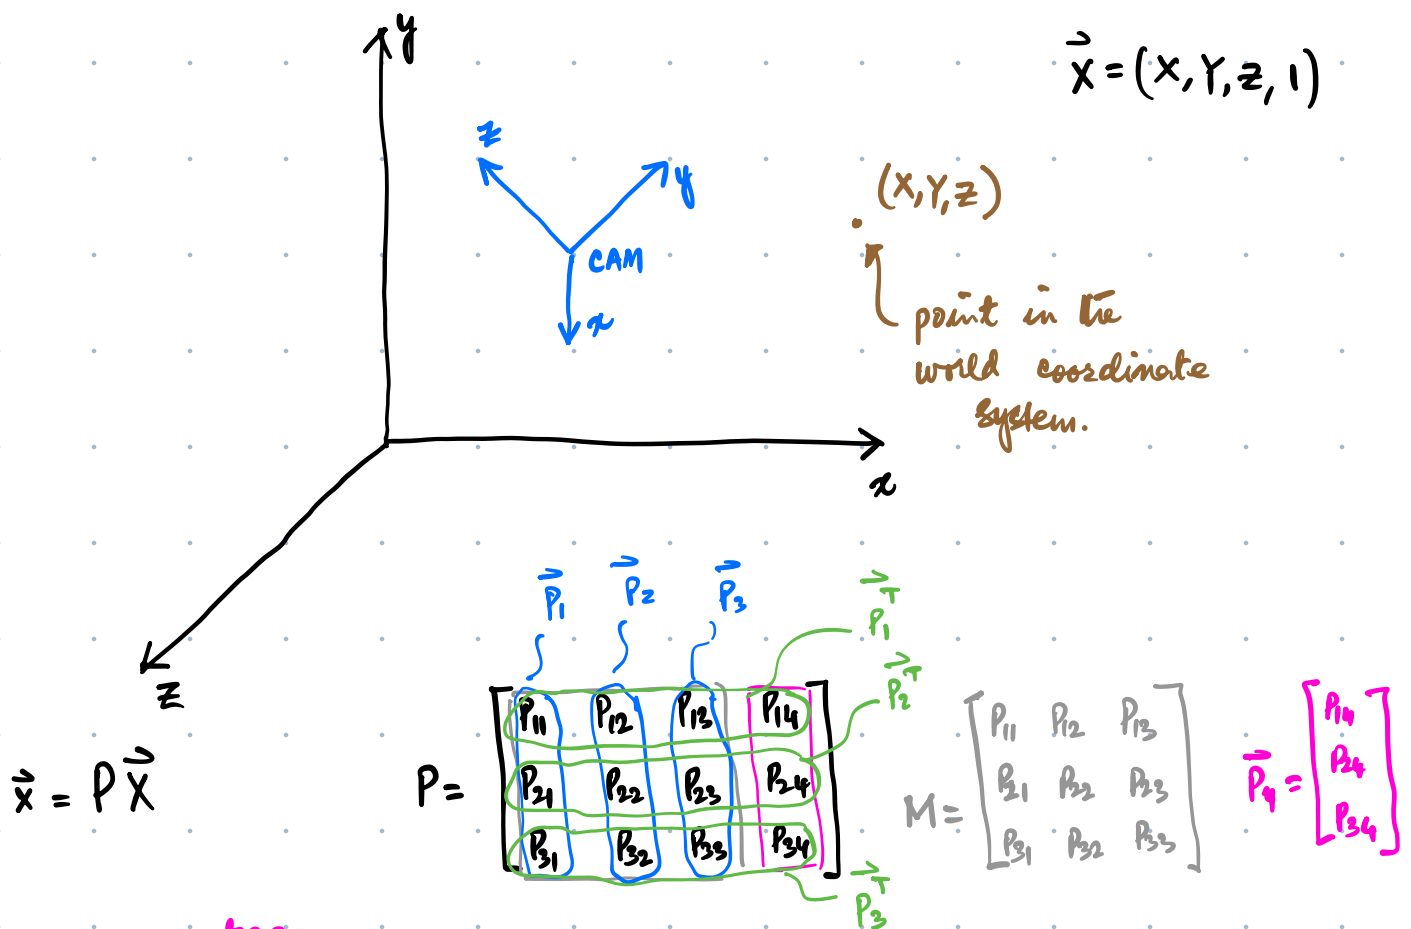 y
X⃗ = (X, Y, Z, 1)
z
y
(X, Y, Z)
CAM
x
point in the
world coordinate
system.
x
z
P⃗₁ P⃗₂ P⃗₃ P⃗₁ᵀ
P⃗₂ᵀ
x⃗ = P X⃗
P =
P₁₁ P₁₂ P₁₃ P₁₄
P₂₁ P₂₂ P₂₃ P₂₄
P₃₁ P₃₂ P₃₃ P₃₄
P⃗₃ᵀ
M =
P₁₁ P₁₂ P₁₃
P₂₁ P₂₂ P₂₃
P₃₁ P₃₂ P₃₃
P⃗₄ =
P₁₄
P₂₄
P₃₄